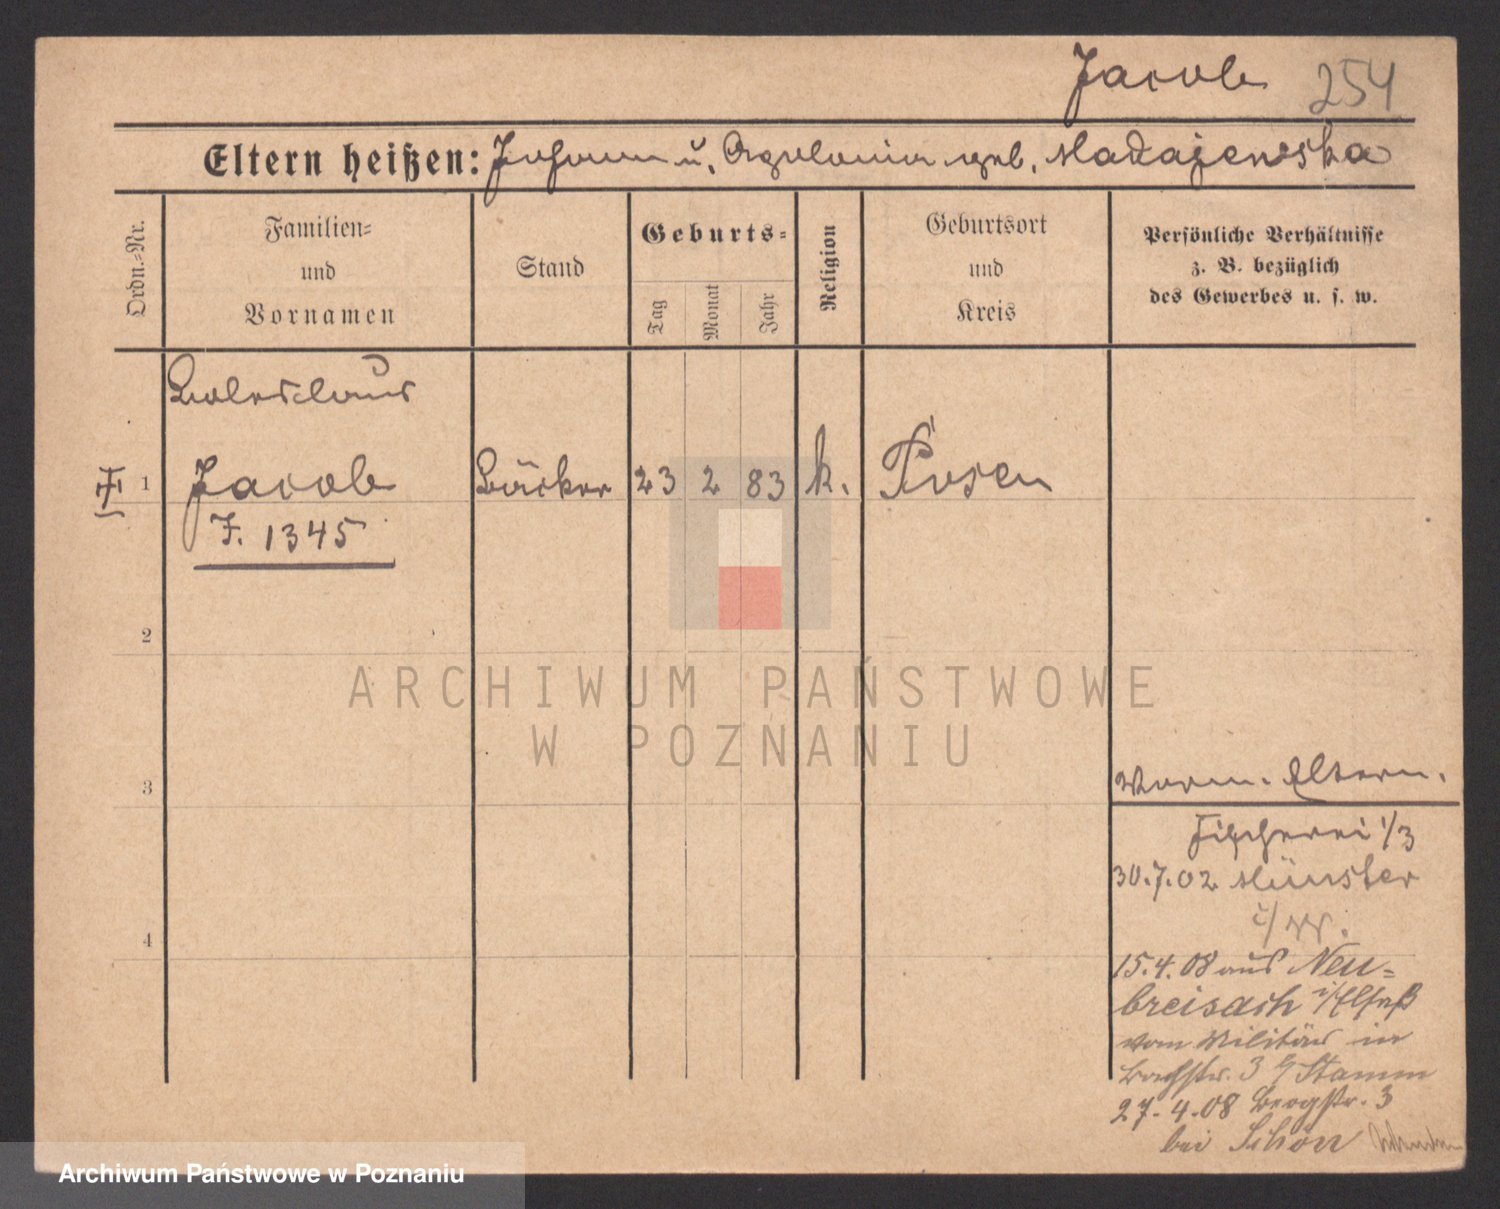 Jacob 254
Eltern heißen: Johann u. Apolonia geb. Madajewska
Ordn.-Nr.
Familien-
und
Vornamen
Stand
Geburts-
Tag
Monat
Jahr
Religion
Geburtsort
und
Kreis
Persönliche Verhältnisse
z. B. bezüglich
des Gewerbes u. s. w.
Boleslaus
1 Jacob Bäcker 23 2 83 k. Posen
F. 1345
2
3
4
Eltern.
Fischerei 1/3
30.7.02 Münster
i/W.
15.4.08 aus Neu-
breisach i/Elsaß
vom Militär in
Bachstr. 3 b/ Stamm
27.4.08 Bergstr. 3
bei Schön
ARCHIWUM PAŃSTWOWE
W POZNANIU
Archiwum Państwowe w Poznaniu